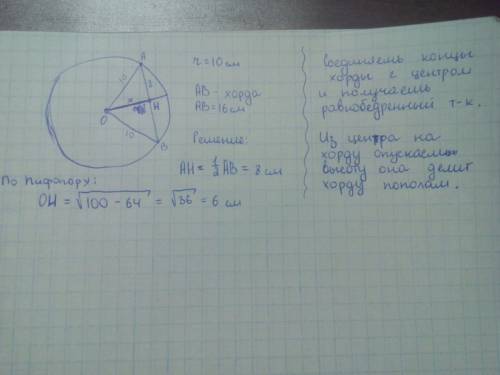 A
10
8
x
H
O
10
B
r = 10 см
AB - хорда
AB = 16 см
Решение:
AH = 1/2 AB = 8 см
По Пифагору:
OH = √100 - 64 = √36 = 6 см
Соединяем концы
хорды с центром
и получаем
равнобедренный т-к.
Из центра на
хорду опускаем
высоту она делит
хорду пополам.